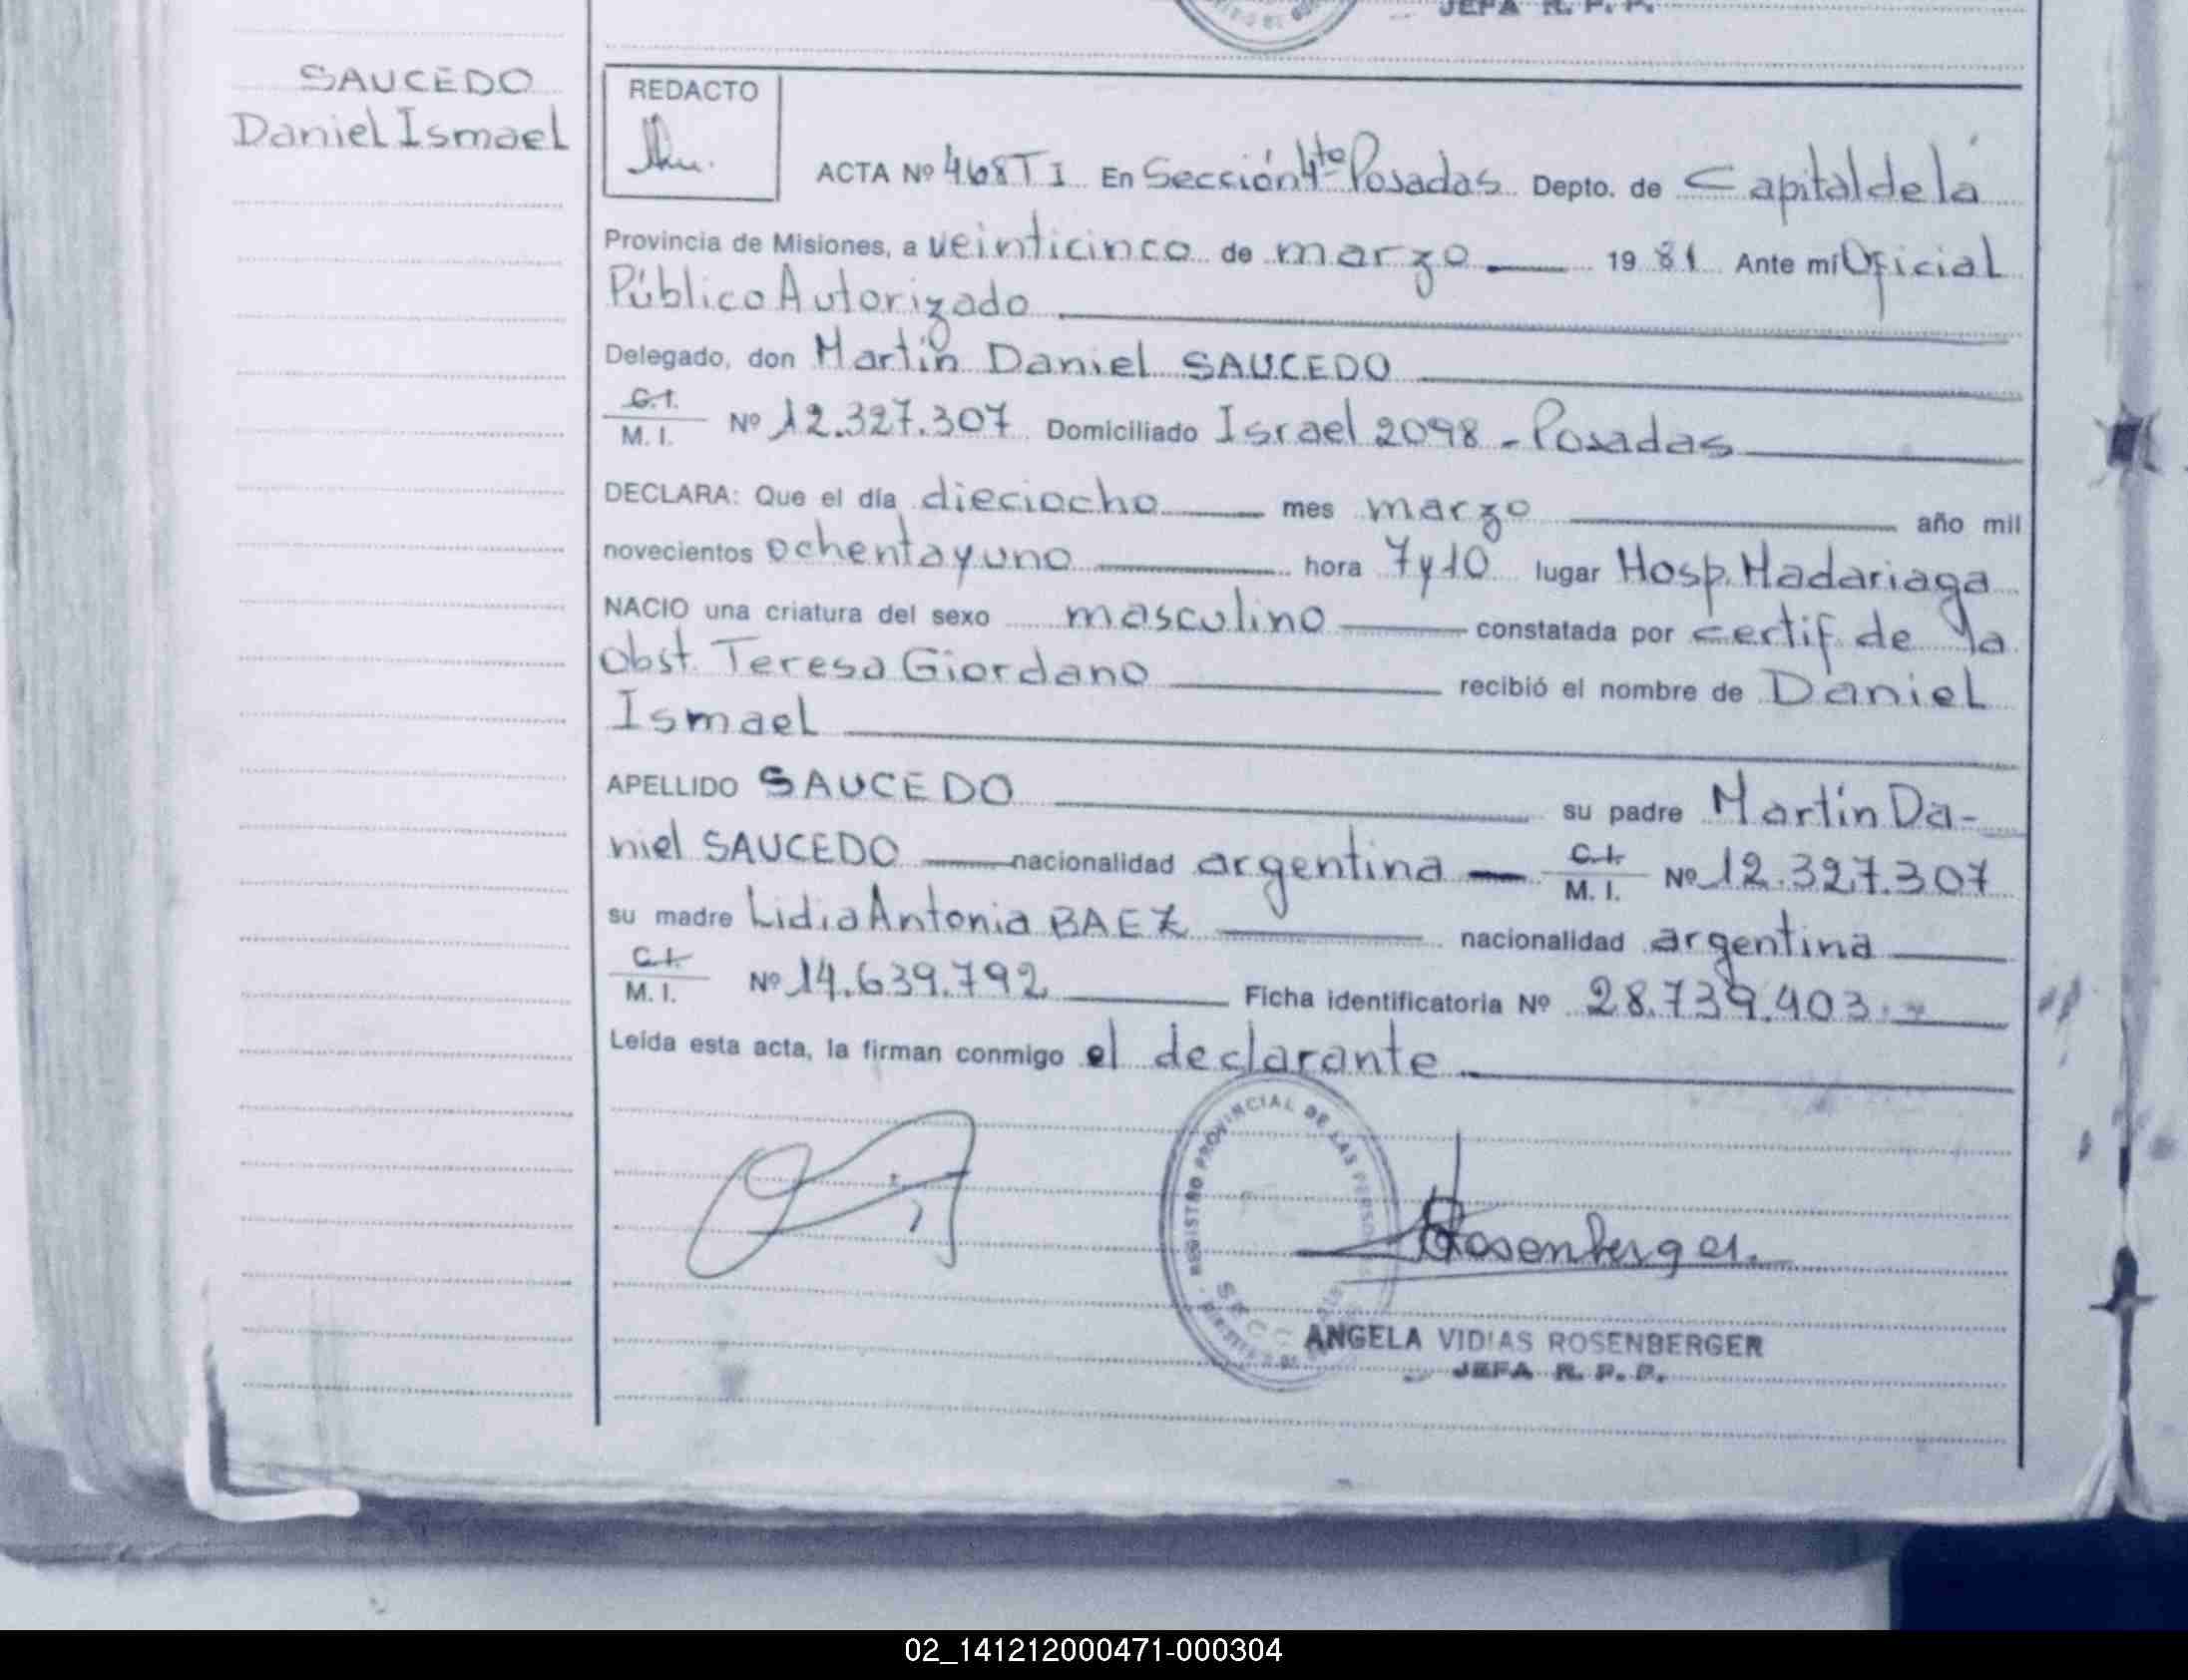 JEFA R. P. P.
SAUCEDO
Daniel Ismael
REDACTO
ACTA Nº 468 T I En Sección 4ta Posadas Depto. de Capital de la
Provincia de Misiones, a veinticinco de marzo 19 81 Ante mí Oficial
Público Autorizado
Delegado, don Martín Daniel SAUCEDO
C.I.
M. I. Nº 12.327.307 Domiciliado Israel 2098 - Posadas
DECLARA: Que el día dieciocho mes marzo año mil
novecientos ochenta y uno hora 7 y 10 lugar Hosp. Madariaga
NACIO una criatura del sexo masculino constatada por certif. de la
Obst. Teresa Giordano recibió el nombre de Daniel
Ismael
APELLIDO SAUCEDO su padre Martín Da-
niel SAUCEDO nacionalidad argentina C.I. M. I. Nº 12.327.307
su madre Lidia Antonia BAEZ nacionalidad argentina
C.I.
M. I. Nº 14.639.792 Ficha identificatoria Nº 28.739.403.-
Leída esta acta, la firman conmigo el declarante
REGISTRO PROVINCIAL DE LAS PERSONAS
Rosenberger.
ANGELA VIDIAS ROSENBERGER
JEFA R. P. P.
02_141212000471-000304